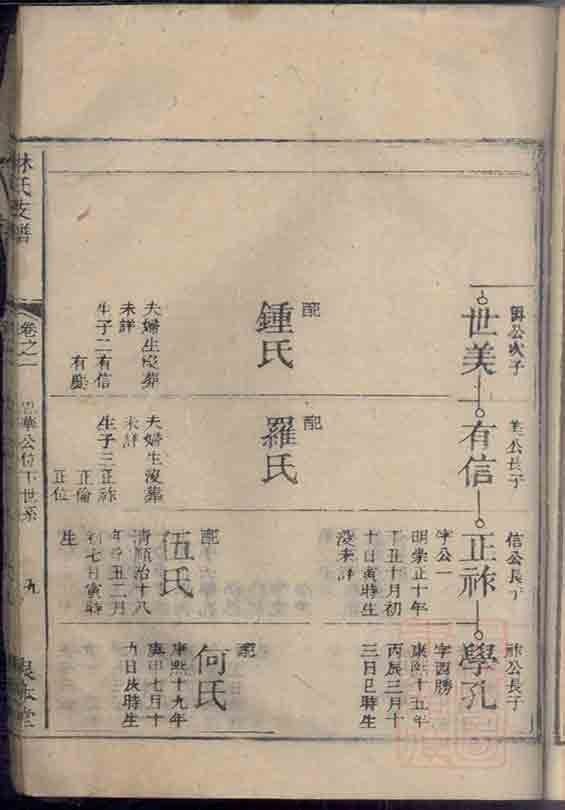 公次子
世美
配
鍾氏
夫婦生歿葬
未詳
生子二有信
有慶
公長子
有信
配
羅氏
夫婦生歿葬
未詳
生子三正祚
正倫
正位
信公長子
正祚
字公一
明崇正十年
丁丑十月初
十日寅時生
歿未詳
配
伍氏
清順治十八
年辛丑二月
初七日寅時
生
祚公長子
學孔
字西勝
康熙十五年
丙辰三月十
三日巳時生
配
何氏
康熙十九年
庚申七月十
九日戌時生
林氏支譜
卷之一
華公位下世系
九